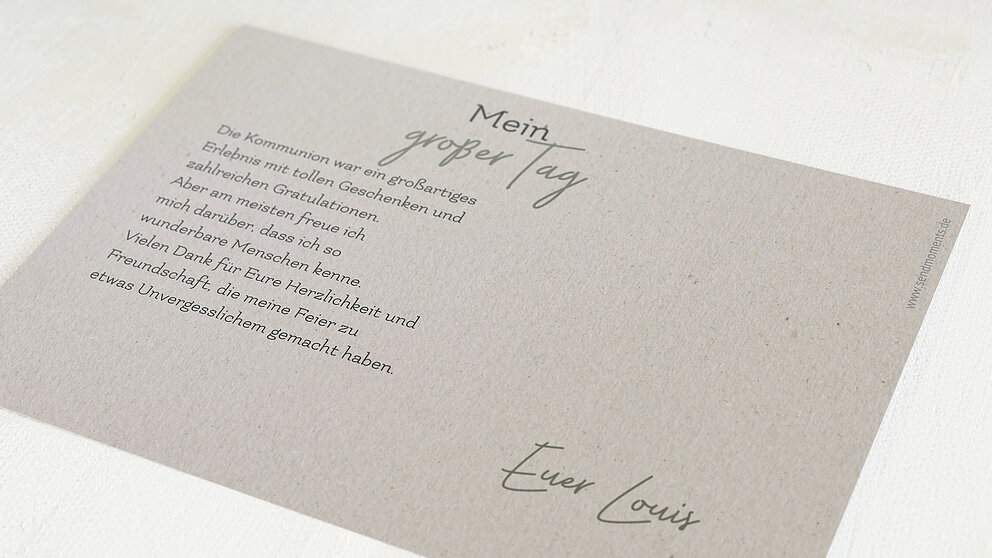 Mein
großer Tag
Die Kommunion war ein großartiges
Erlebnis mit tollen Geschenken und
zahlreichen Gratulationen.
Aber am meisten freue ich
mich darüber, dass ich so
wunderbare Menschen kenne.
Vielen Dank für Eure Herzlichkeit und
Freundschaft, die meine Feier zu
etwas Unvergesslichem gemacht haben.
Euer Louis
www.sendmoments.de